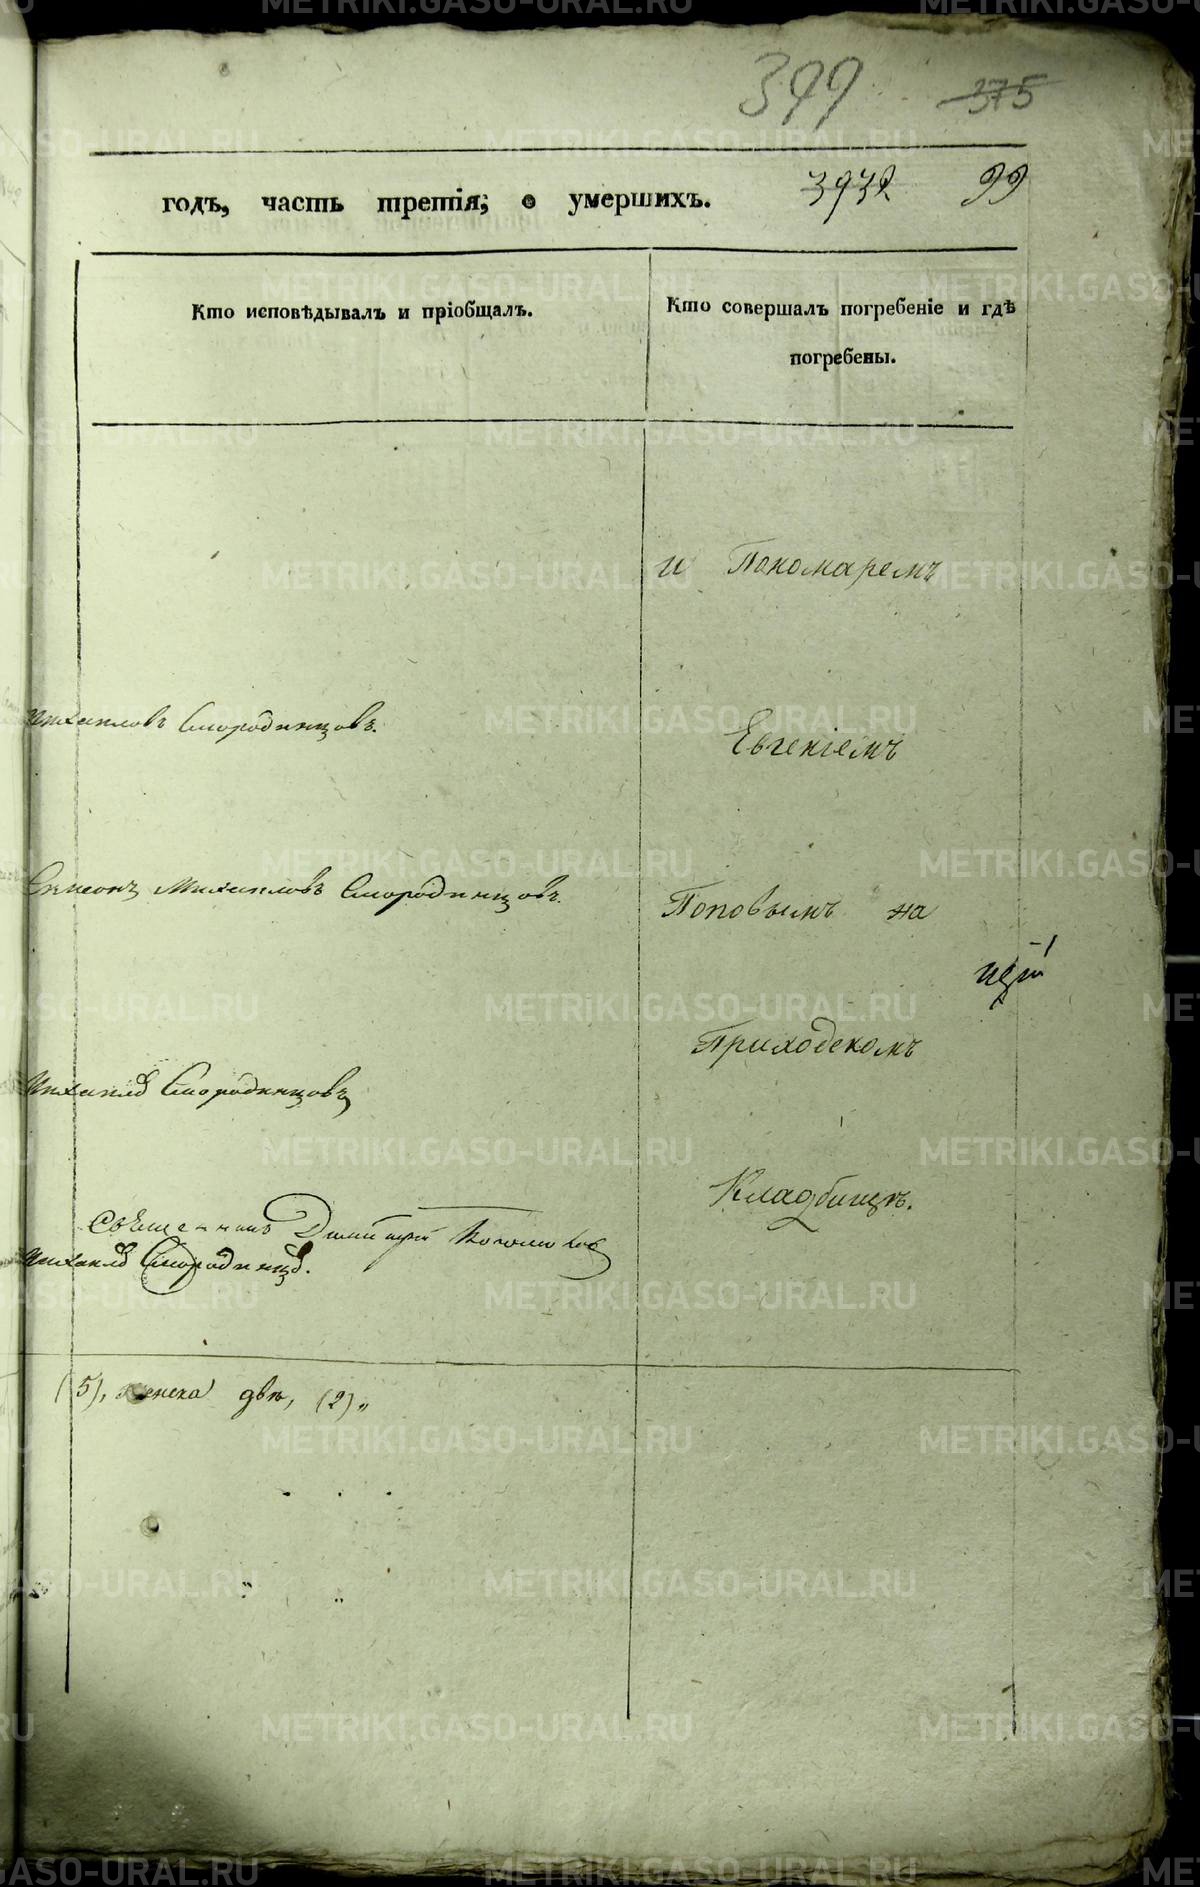 399 375
годъ, часть третія, о умершихъ. 3932 99
Кто исповѣдывалъ и пріобщалъ.
Кто совершалъ погребеніе и гдѣ
погребены.
и Пономаремъ
Михаиловъ Смородинцовъ.
Евгеніемъ
Симеонъ Михаиловъ Смородинцовъ.
Поповымъ на
Приходскомъ
Михаилов Смородинцовъ
Кладбищѣ.
Священникъ Димитрій
Михаилов Смородинцов.
(5), женска двѣ, (2)„